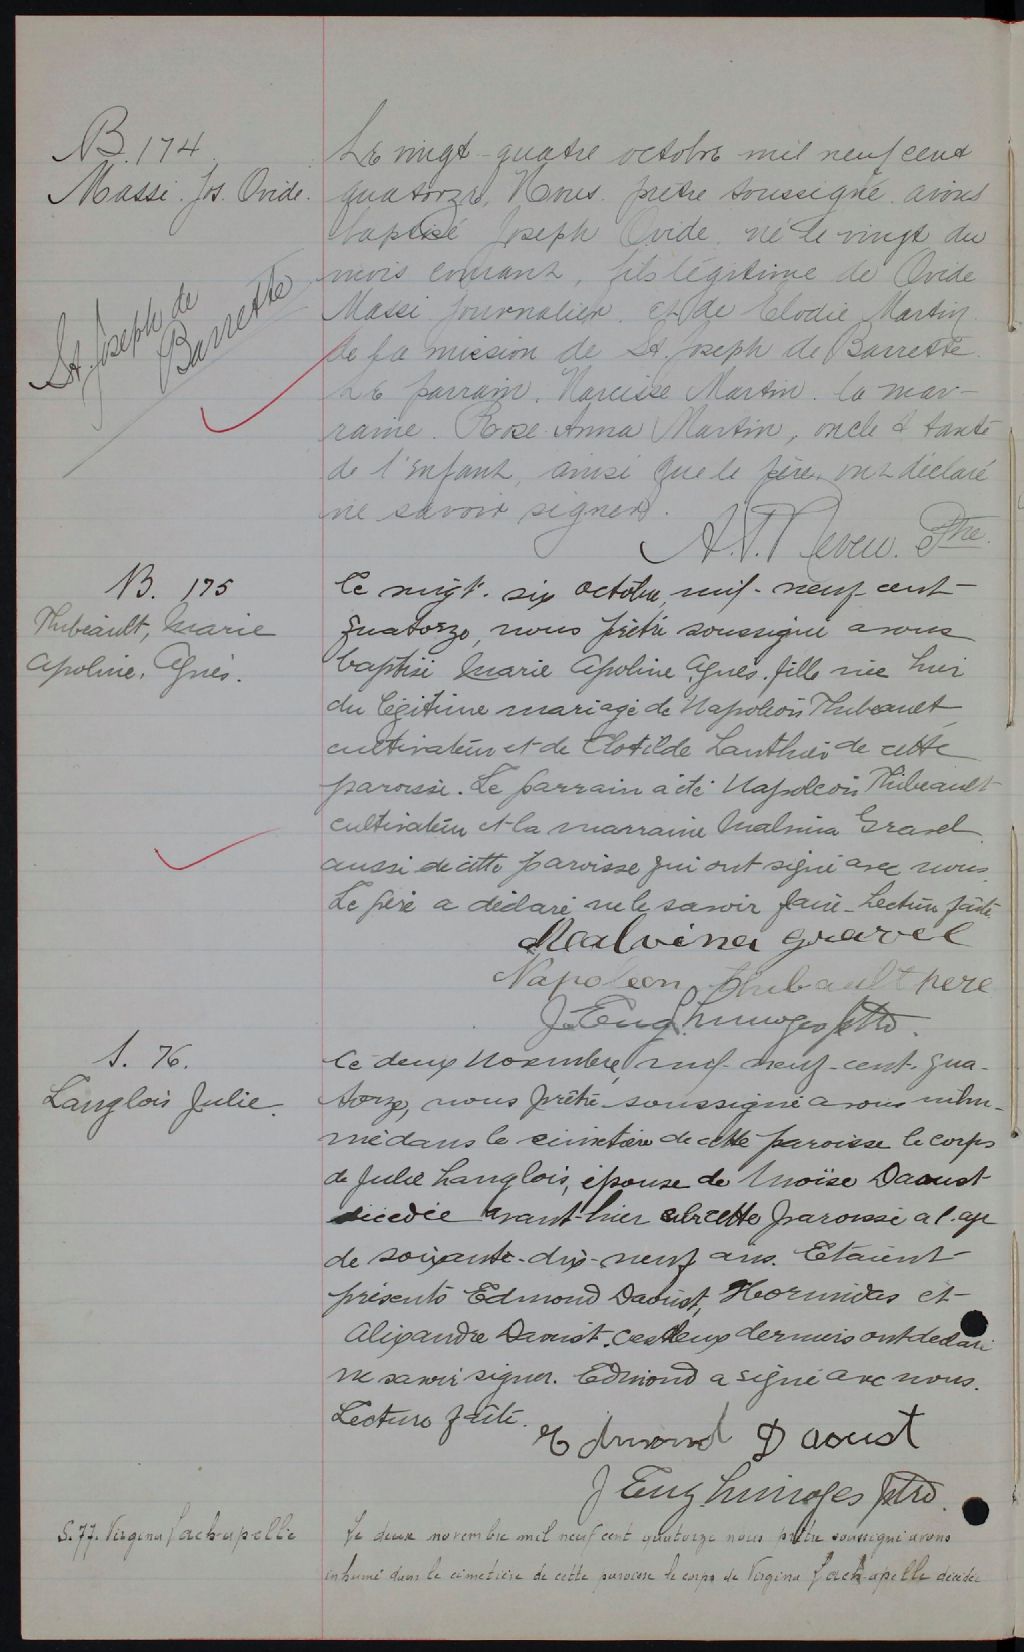 B. 174
Massé. Jos. Ovide.
St. Joseph de
Barrette
Le vingt-quatre octobre mil neuf cent
quatorze, Nous prêtre soussigné avons
baptisé Joseph Ovide, né le vingt du
mois courant, fils légitime de Ovide
Massé journalier et de Elodie Martin
de la mission de St. Joseph de Barrette.
Le parrain. Narcisse Martin. la mar-
raine. Rose-Anna Martin, oncle & tante
de l'enfant, ainsi que le père, ont déclaré
ne savoir signer.
A.T. Neveu. Ptre.
B. 175
Thibeault, Marie
Apoline, Agnès.
Le vingt-six octobre, mil-neuf-cent-
quatorze, nous prêtre soussigné avons
baptisé Marie Apoline Agnès, fille née hier
du légitime mariage de Napoléon Thibeault
cultivateur et de Clotilde Lanthier de cette
paroisse. Le parrain a été Napoléon Thibeault
cultivateur et la marraine Malvina Gravel
aussi de cette paroisse qui ont signé avec nous.
Le père a déclaré ne le savoir faire. Lecture faite
Malvina gravel
Napoleon Thibault pere
J. Eug. Limoges ptre.
S. 76.
Langlois Julie.
Le deux Novembre, mil-neuf-cent-qua-
torze, nous prêtre soussigné avons inhu-
mé dans le cimetière de cette paroisse le corps
de Julie Langlois, épouse de Moïse Daoust
décédée avant-hier de cette paroisse a l'age
de soixante-dix-neuf ans. Etaient
présents Edmond Daoust, Hormidas et
Alexandre Daoust. Ces deux derniers ont déclaré
ne savoir signer. Edmond a signé avec nous.
Lecture faite.
Edmond Daoust
J Eug Limoges ptre.
S. 77. Virgina Lachapelle
Le deux novembre mil neuf cent quatorze nous prêtre soussigné avons
inhumé dans le cimetière de cette paroisse le corps de Virgina Lachapelle décédée